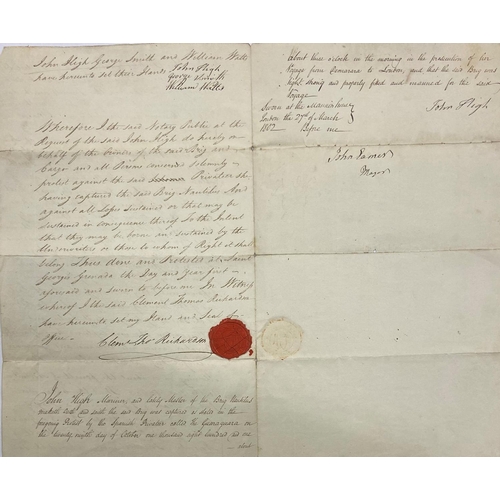 John Pligh George Smith and William Watts
have hereunto set their Hands John Pligh
George Smith
William Watts
Wherefore I the said Notary Public at the
Request of the said John Pligh do hereby on
behalf of the Owners of the said Brig and
Cargo and all Persons concerned solemnly
protest against the said Schooner Privateer she
having captured the said Brig Nautilus And
against all Losses sustained or that may be
sustained in consequence thereof To the Intent
that they may be borne and sustained by the
Underwriters or those to whom of Right it shall
belong Thus done and Protested at Saint
Georges Grenada the Day and Year first
aforesaid and sworn to before me In Witness
whereof I the said Clement Thomas Richardson
have hereunto set my Hand and Seal of
Office
Clemt Thos Richardson
John Pligh Mariner and lately Master of the Brig Nautilus
maketh oath and saith the said Brig was captured as stated in the
foregoing Protest by the Spanish Privateer called the
on the twenty ninth day of October one thousand eight hundred and one
about three o'clock in the morning in the prosecution of her
Voyage from Demarara to London, and that the said Brig was
tight strong and properly fitted and manned for the said
Voyage
Sworn at the Mansion house
London the 27th of March
1802 Before me
John Pligh
John Eamer
Mayor